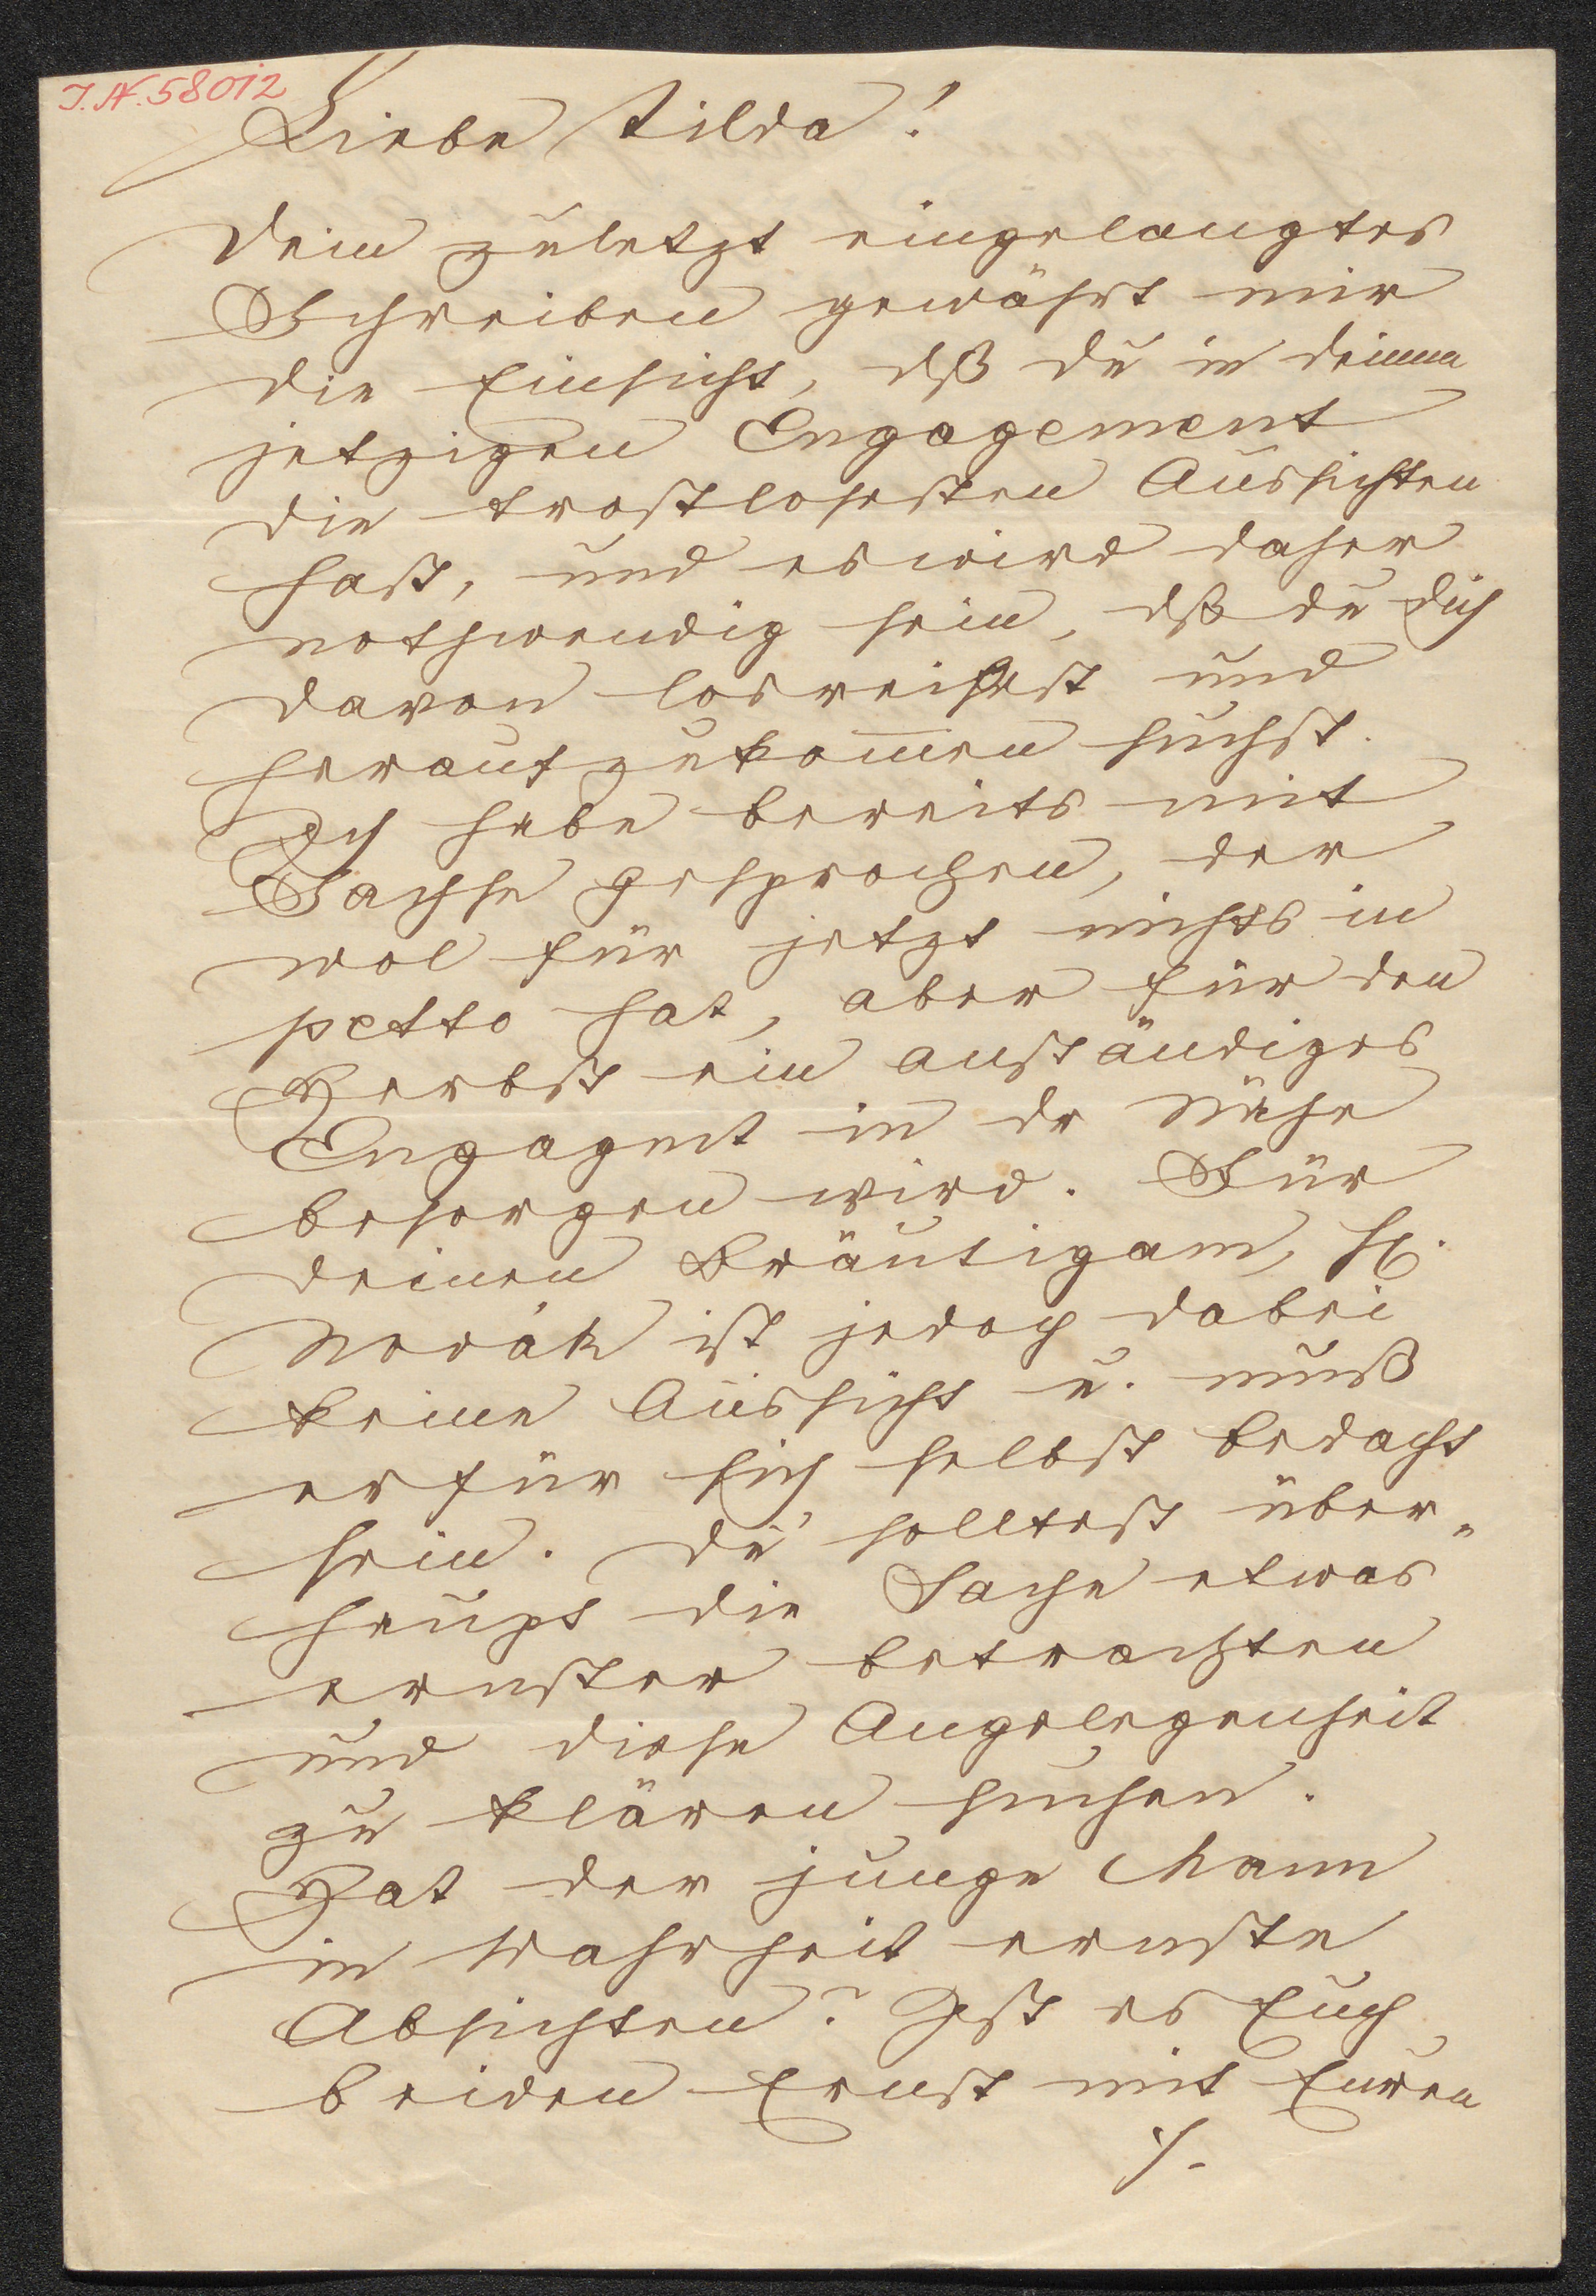 I.N. 58012
Liebe Tilda!
Dein zuletzt eingelangtes
Schreiben gewährt mir
die Einsicht, dß du in deinem
jetzigen Engagement
die trostlosesten Aussichten
hast, und es wird daher
nothwendig sein, dß du dich
davon losreissest und
heraufzukom̅en suchst.
Ich habe bereits mit
Sachse gesprochen, der
wol für jetzt nichts in
petto hat, aber für den
Herbst ein anständiges
Engagmt in dr Nähe
besorgen wird. Für
deinen Bräutigam, H.
Novák ist jedoch dabei
keine Aussicht u. muß
er für sich selbst bedacht
sein. Du solltest über-
haupt die Sache etwas
ernster betrachten
und diese Angelegenheit
zu klären suchen.
Hat der junge Mann
in Wahrheit ernste
Absichten? Ist es Euch
beiden Ernst mit Euren
./.